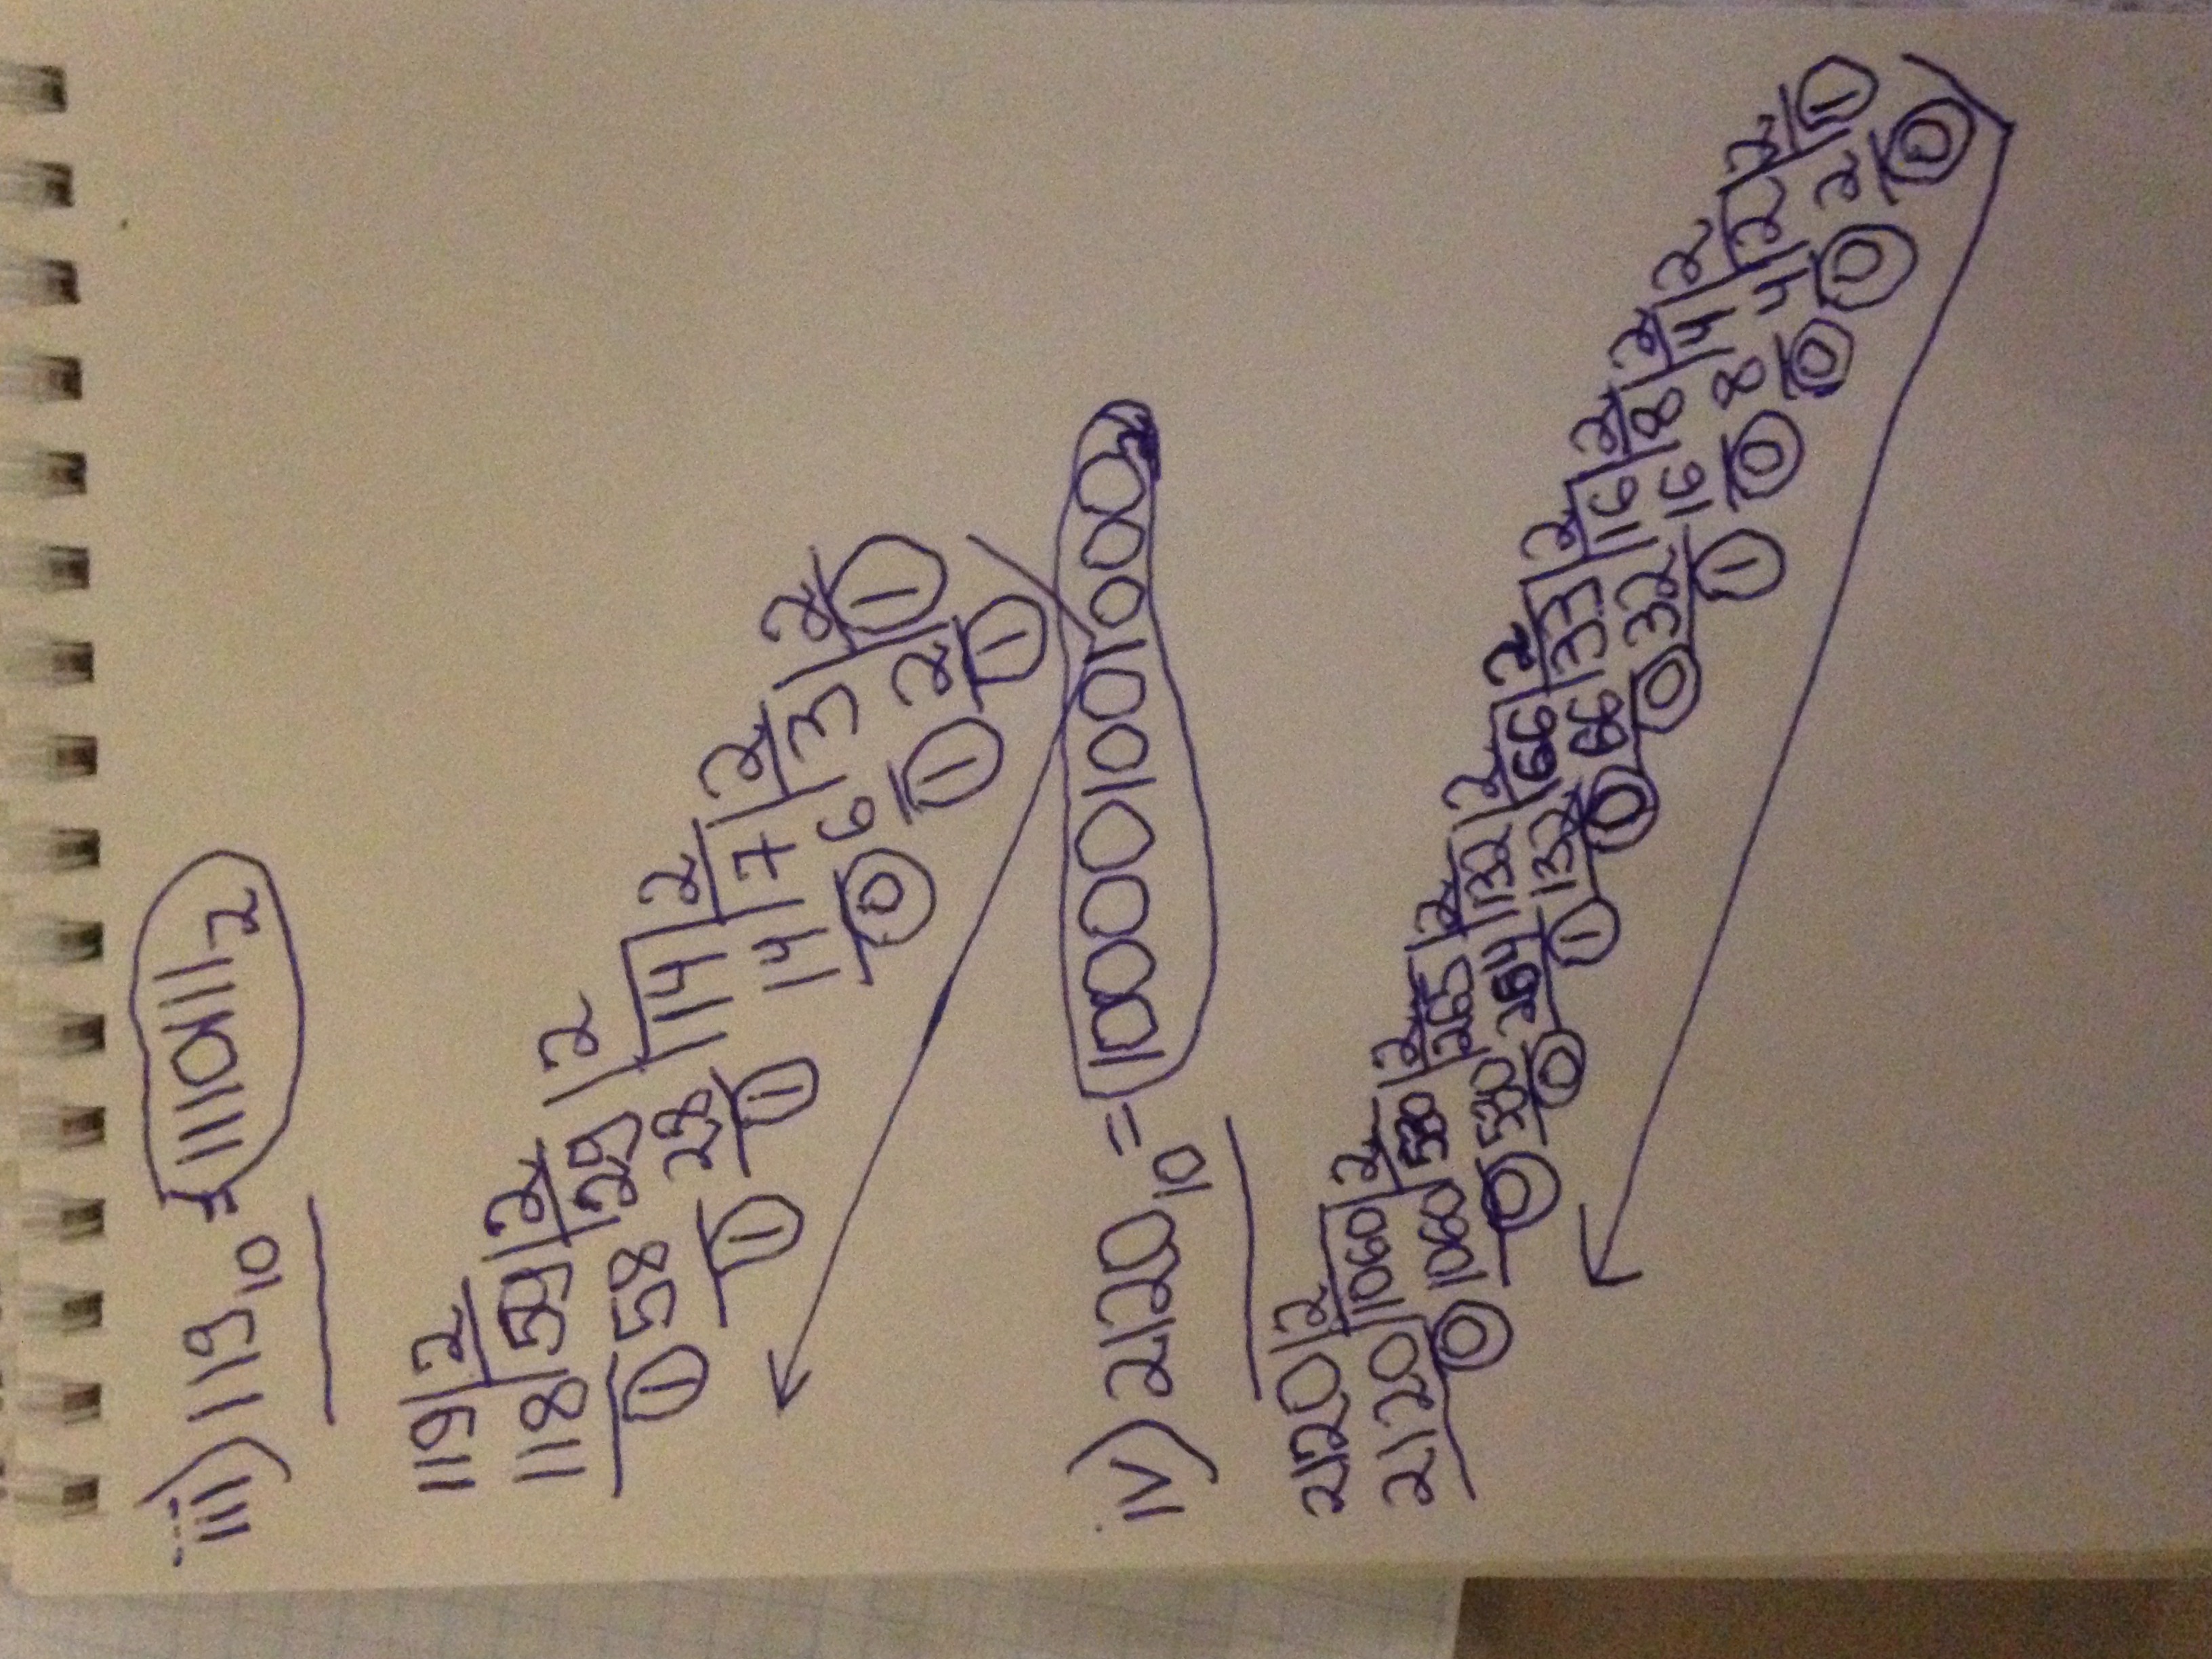 iii) 119₁₀ = 1110111₂
119 2
118 59 2
1 58 29 2
1 28 14 2
1 14 7 2
0 6 3 2
1 2 1
1
iv) 2120₁₀ = 100001001000₂
2120 2
2120 1060 2
0 1060 530 2
0 530 265 2
0 264 132 2
1 132 66 2
0 66 33 2
0 32 16 2
1 16 8 2
0 8 4 2
0 4 2 2
0 2 1
0